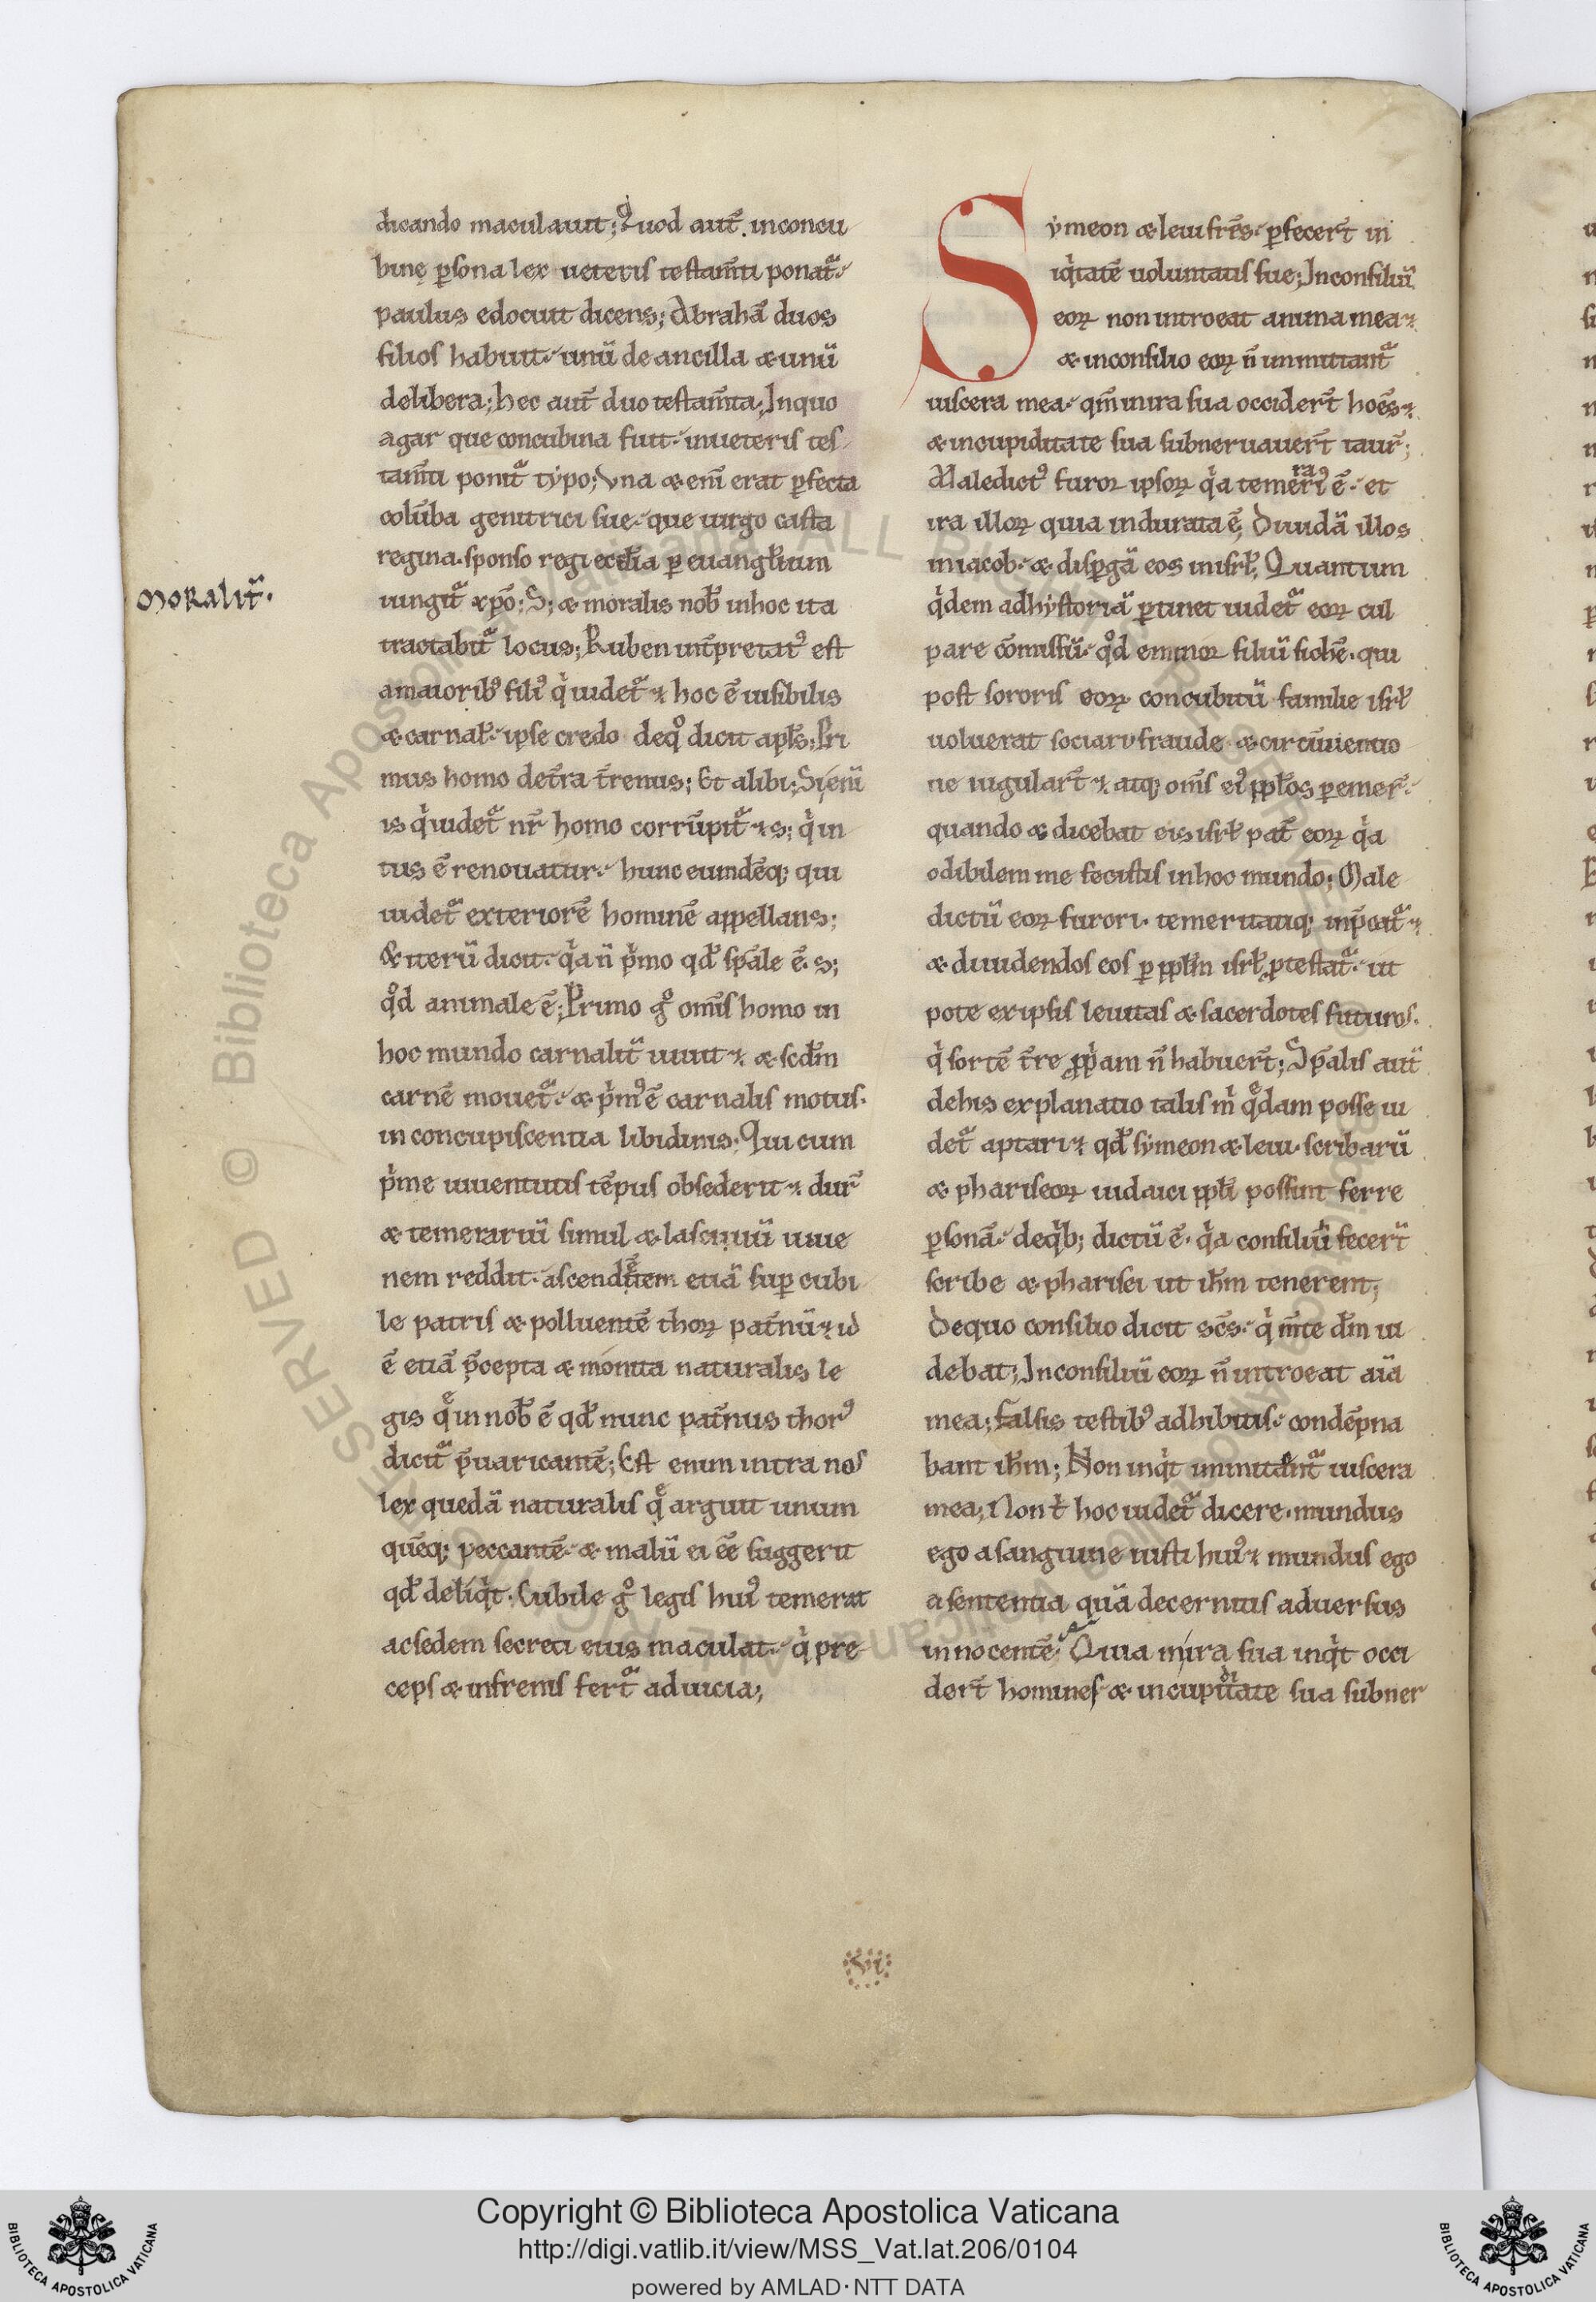 dicando maculauit; Quod aut̄. inconcu
binę ꝑsona lex ueteris testam̄ti ponat᷑.
paulus edocuit dicens; Abrahā duos
filios habuit. unū de ancilla & unū
delibera; hec aut̄ duo testam̄ta; Inquo
agar que concubina fuit. inueteris tes
tam̄ti ponit᷑ typo; Vna & enī erat ꝑfecta
colūba genitrici sue. que uirgo casta
regina. sponso regi eccl̄ia ꝑ euangłium
iungit᷑ xp̄o; S; & moralis nob̄ inhoc ita
tractabit᷑ locus; Ruben int̄pretat᷒ est
amaiorib᷒ fili᷒ qͥ uidet᷑. hoc ē uisibilis
& carnał. ipse credo deqͦ dicit apłs; Pri
mus homo det̄ra t̄renus; Et alibi; Si enī
is qͥ uidet᷑ nr̄ homo corrūpit᷑. s; qͥ in
tus ē renouatur. hunc eundēq; qui
uidet᷑ exteriorē hominē appellans;
& iterū dicit. qͥa n̄ pͥmo qd̄ spāle ē. s;
qͦd animale ē; Primo gͦ omīs homo in
hoc mundo carnalit᷑ uiuit. & scd̄m
carnē mouet᷑. & pͥm᷒ ē carnalis motus.
in concupiscentia libidinis; Qui cum
pͥme iuuentutis tēpus obsederit. dur̄
& temerariū simul & lasciuū iuue
nem reddit. ascendēntem etiā suꝑ cubi
le patris & polluentē thoꝝ pat̄nū. id
ē etiā p̄cepta & monita naturalis le
gis qͤ in nob̄ ē qd̄ nunc pat̄nus thor᷒
dicit᷑ p̄uaricantē; Est enim intra nos
lex quedā naturalis qͤ arguit unum
quēq; peccantē. & malū ei ēē suggerit
qd̄ deliqͥt. Cubile gͦ legis hui᷒ temerat
acsedem secreti eius maculat. qͥ pre
ceps & infrenis fert᷑ aduicia;
Moralit᷑.
Symeon & leui fr̄es. ꝑfecer̄t in
iqͥtatē uoluntatis sue; Inconsiliū
eoꝝ non introeat anima mea.
& inconsilio eoꝝ n̄ inmittant᷑
uiscera mea. qm̄ inira sua occider̄t hoēs.
& incupiditate sua subneruauer̄t taur̄;
Maledict᷒ furor ipsoꝝ qͥa temerari᷒ ē. et
ira illoꝝ quia indurata ē; Diuidā illos
iniacob. & disꝑgā eos inisrł; Quantum
qͥdem adhystoriā ꝑtinet uidet᷑ eoꝝ cul
pare cōmissū. qͦd emmor filiū sichē. qui
post sororis eoꝝ concubitū familie isrł
uoluerat sociari fraude & circūuentio
ne iugular̄t. atq; omīs ei᷒ ppłos ꝑemer̄.
quando & dicebat eis isrł pat̄ eoꝝ qͥa
odibilem me fecistis inhoc mundo; Male
dictū eoꝝ furori. temeritatiq; inp̄cat᷑.
& diuidendos eos ꝑ ppłm isrł ꝓtestat᷑. ut
pote exipsis leuitas & sacerdotes futuros.
qͥ sortē t̄re ꝓpͥam n̄ habuer̄t; Sp̄alis aut̄
dehis explanatio talis mͥ qͤdam posse ui
det᷑ aptari. qd̄ symeon & leui. scribarū
& phariseoꝝ iudaici ppłi possint ferre
ꝑsonā. deqͥb; dictū ē. qͥa consiliū fecer̄t
scribe & pharisei ut ih̄m tenerent;
Dequo consilio dicit sc̄s. qͥ m̄te dm̄ ui
debat; Inconsiliū eoꝝ n̄ introeat aīa
mea; Falsis testib᷒ adhibitis. condēpna
bant ih̄m; Non inqͥt inmittant᷑ uiscera
mea; Non t̄ hoc uidet᷑ dicere. mundus
ego asanguine iusti hui᷒. mundus ego
asententia quā decernitis aduersus
innocentē. Quia in ira sua inqͥt occi
der̄t homines & incupiditate sua subner
XI
Copyright © Biblioteca Apostolica Vaticana
http://digi.vatlib.it/view/MSS_Vat.lat.206/0104
powered by AMLAD·NTT DATA
BIBLIOTECA APOSTOLICA VATICANA
BIBLIOTECA APOSTOLICA VATICANA